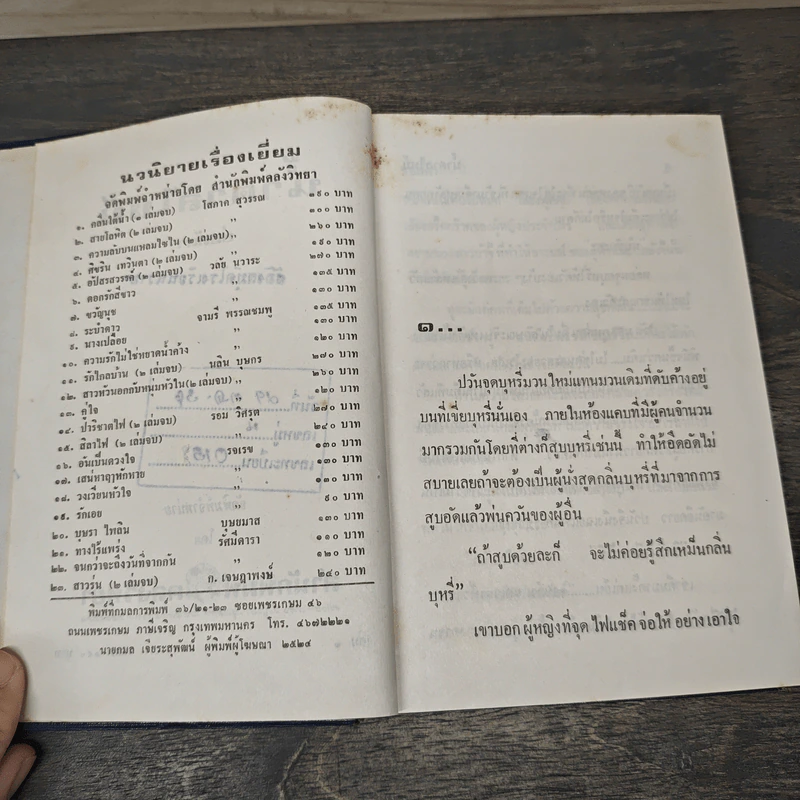 นวนิยายเรื่องเยี่ยม
จัดพิมพ์จำหน่ายโดย สำนักพิมพ์คลังวิทยา
๑. คลื่นใต้น้ำ (๑ เล่มจบ) โสภาค สุวรรณ ๑๙๐ บาท
๒. สายโลหิต (๒ เล่มจบ) ,, ๓๐๐ บาท
๓. ความลับบนแหลมไซไน (๒ เล่มจบ) ,, ๒๖๐ บาท
๔. ศิขริน เทวินตา (๒ เล่มจบ) ,, ๑๙๐ บาท
๕. อัปสรสวรรค์ (๒ เล่มจบ) วลัย นวาระ ๒๗๐ บาท
๖. ดอกรักสีขาว ,, ๑๓๕ บาท
๗. ขวัญนุช ,, ๑๓๐ บาท
๘. ระบำดาว จามรี พรรณชมพู ๑๓๕ บาท
๙. นางเปลือย ,, ๑๓๐ บาท
๑๐. ความรักไม่ใช่หยาดน้ำค้าง ,, ๑๒๐ บาท
๑๑. รักไกลบ้าน (๒ เล่มจบ) นลิน บุษกร ๒๗๐ บาท
๑๒. สาวทัวนอกกับหนุ่มหัวใน (๒ เล่มจบ) ,, ๒๖๐ บาท
๑๓. คู่ใจ ,, ๑๒๐ บาท
๑๔. ปาริชาตไฟ (๒ เล่มจบ) รอม วิศรุต ๒๗๐ บาท
๑๕. สิลาไฟ (๒ เล่มจบ) ,, ๒๔๐ บาท
๑๖. อันเป็นดวงใจ รจเรข ๑๓๐ บาท
๑๗. เสน่หาฤๅหักหาย ,, ๑๓๐ บาท
๑๘. วงเวียนหัวใจ ,, ๑๓๐ บาท
๑๙. รักเอย ,, ๙๐ บาท
๒๐. บุษรา ไพลิน บุษยมาส ๑๓๐ บาท
๒๑. ทางไร้แพร่ง รัศมีดารา ๑๑๐ บาท
๒๒. จนกว่าจะถึงวันที่จากกัน ,, ๑๒๐ บาท
๒๓. สาวรุ่น (๒ เล่มจบ) ก. เจษฎาพงษ์ ๒๔๐ บาท
พิมพ์ที่กมลการพิมพ์ ๓๖/๒๑-๒๓ ซอยเพชรเกษม ๔๖
ถนนเพชรเกษม ภาษีเจริญ กรุงเทพมหานคร โทร. ๔๖๗๒๒๒๑
นายกมล เจียระสุพัฒน์ ผู้พิมพ์ผู้โฆษณา ๒๕๒๔
๑...
ปวันจุดบุหรี่มวนใหม่แทนมวนเดิมที่ดับค้างอยู่
บนที่เขี่ยบุหรี่นั่นเอง ภายในห้องแคบที่มีผู้คนจำนวน
มากรวมกันโดยที่ต่างก็สูบบุหรี่เช่นนี้ ทำให้อึดอัดไม่
สบายเลยถ้าจะต้องเป็นผู้นั่งสูดกลิ่นบุหรี่ที่มาจากการ
สูบอัดแล้วพ่นควันของผู้อื่น
“ถ้าสูบด้วยละก็ จะไม่ค่อยรู้สึกเหม็นกลิ่น
บุหรี่”
เขาบอก ผู้หญิงที่จุด ไฟแช็ค จ่อให้ อย่าง เอาใจ